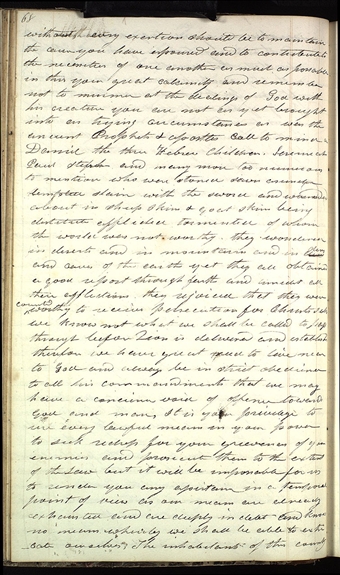 68
without every exertion should be to maintain
the cause you have espoused and to contribute to
the necesities of one another as much as possible
in this your great calamity and remember
not to murmer at the dealings of God with
his creature you are not as yet brought
into as trying circumstances as were the
ancient Prophets & Apostles Call to mind a
Daniel the three Hebrew Children Jeremiah
Paul Stephen and many more too numerous
to mention who were stoned sawn asunder
tempted slain with the sword and wandered
about in sheep skins & goat skins being
destitute afflicted tormented of whom
the world was not worthy. they wandered
in deserts and in mountains and in dens
and caves of the earth yet they all obtained
a good report through faith and amidst all
their afflictions they rejoiced that they were
counted worthy to receive persecution for Christs sake
we know not what we shall be called to pass
through before Zion is delivered and established
therefore we have great need to live near
to God and always be in strict obedience
to all his commandments that we may
have a concience void of offence toward
God and man. It is your privilege to
use every lawful means in your power
to seek redress for your grievances of your
enemies and prosecute them to the extent
of the Law but it will be impossible for us
to render you any assistance in a temporal
point of view as our means are already
exhausted and are deeply in debt and know
no means whereby we shall be able to extri
cate ourselves The inhabitants of this county